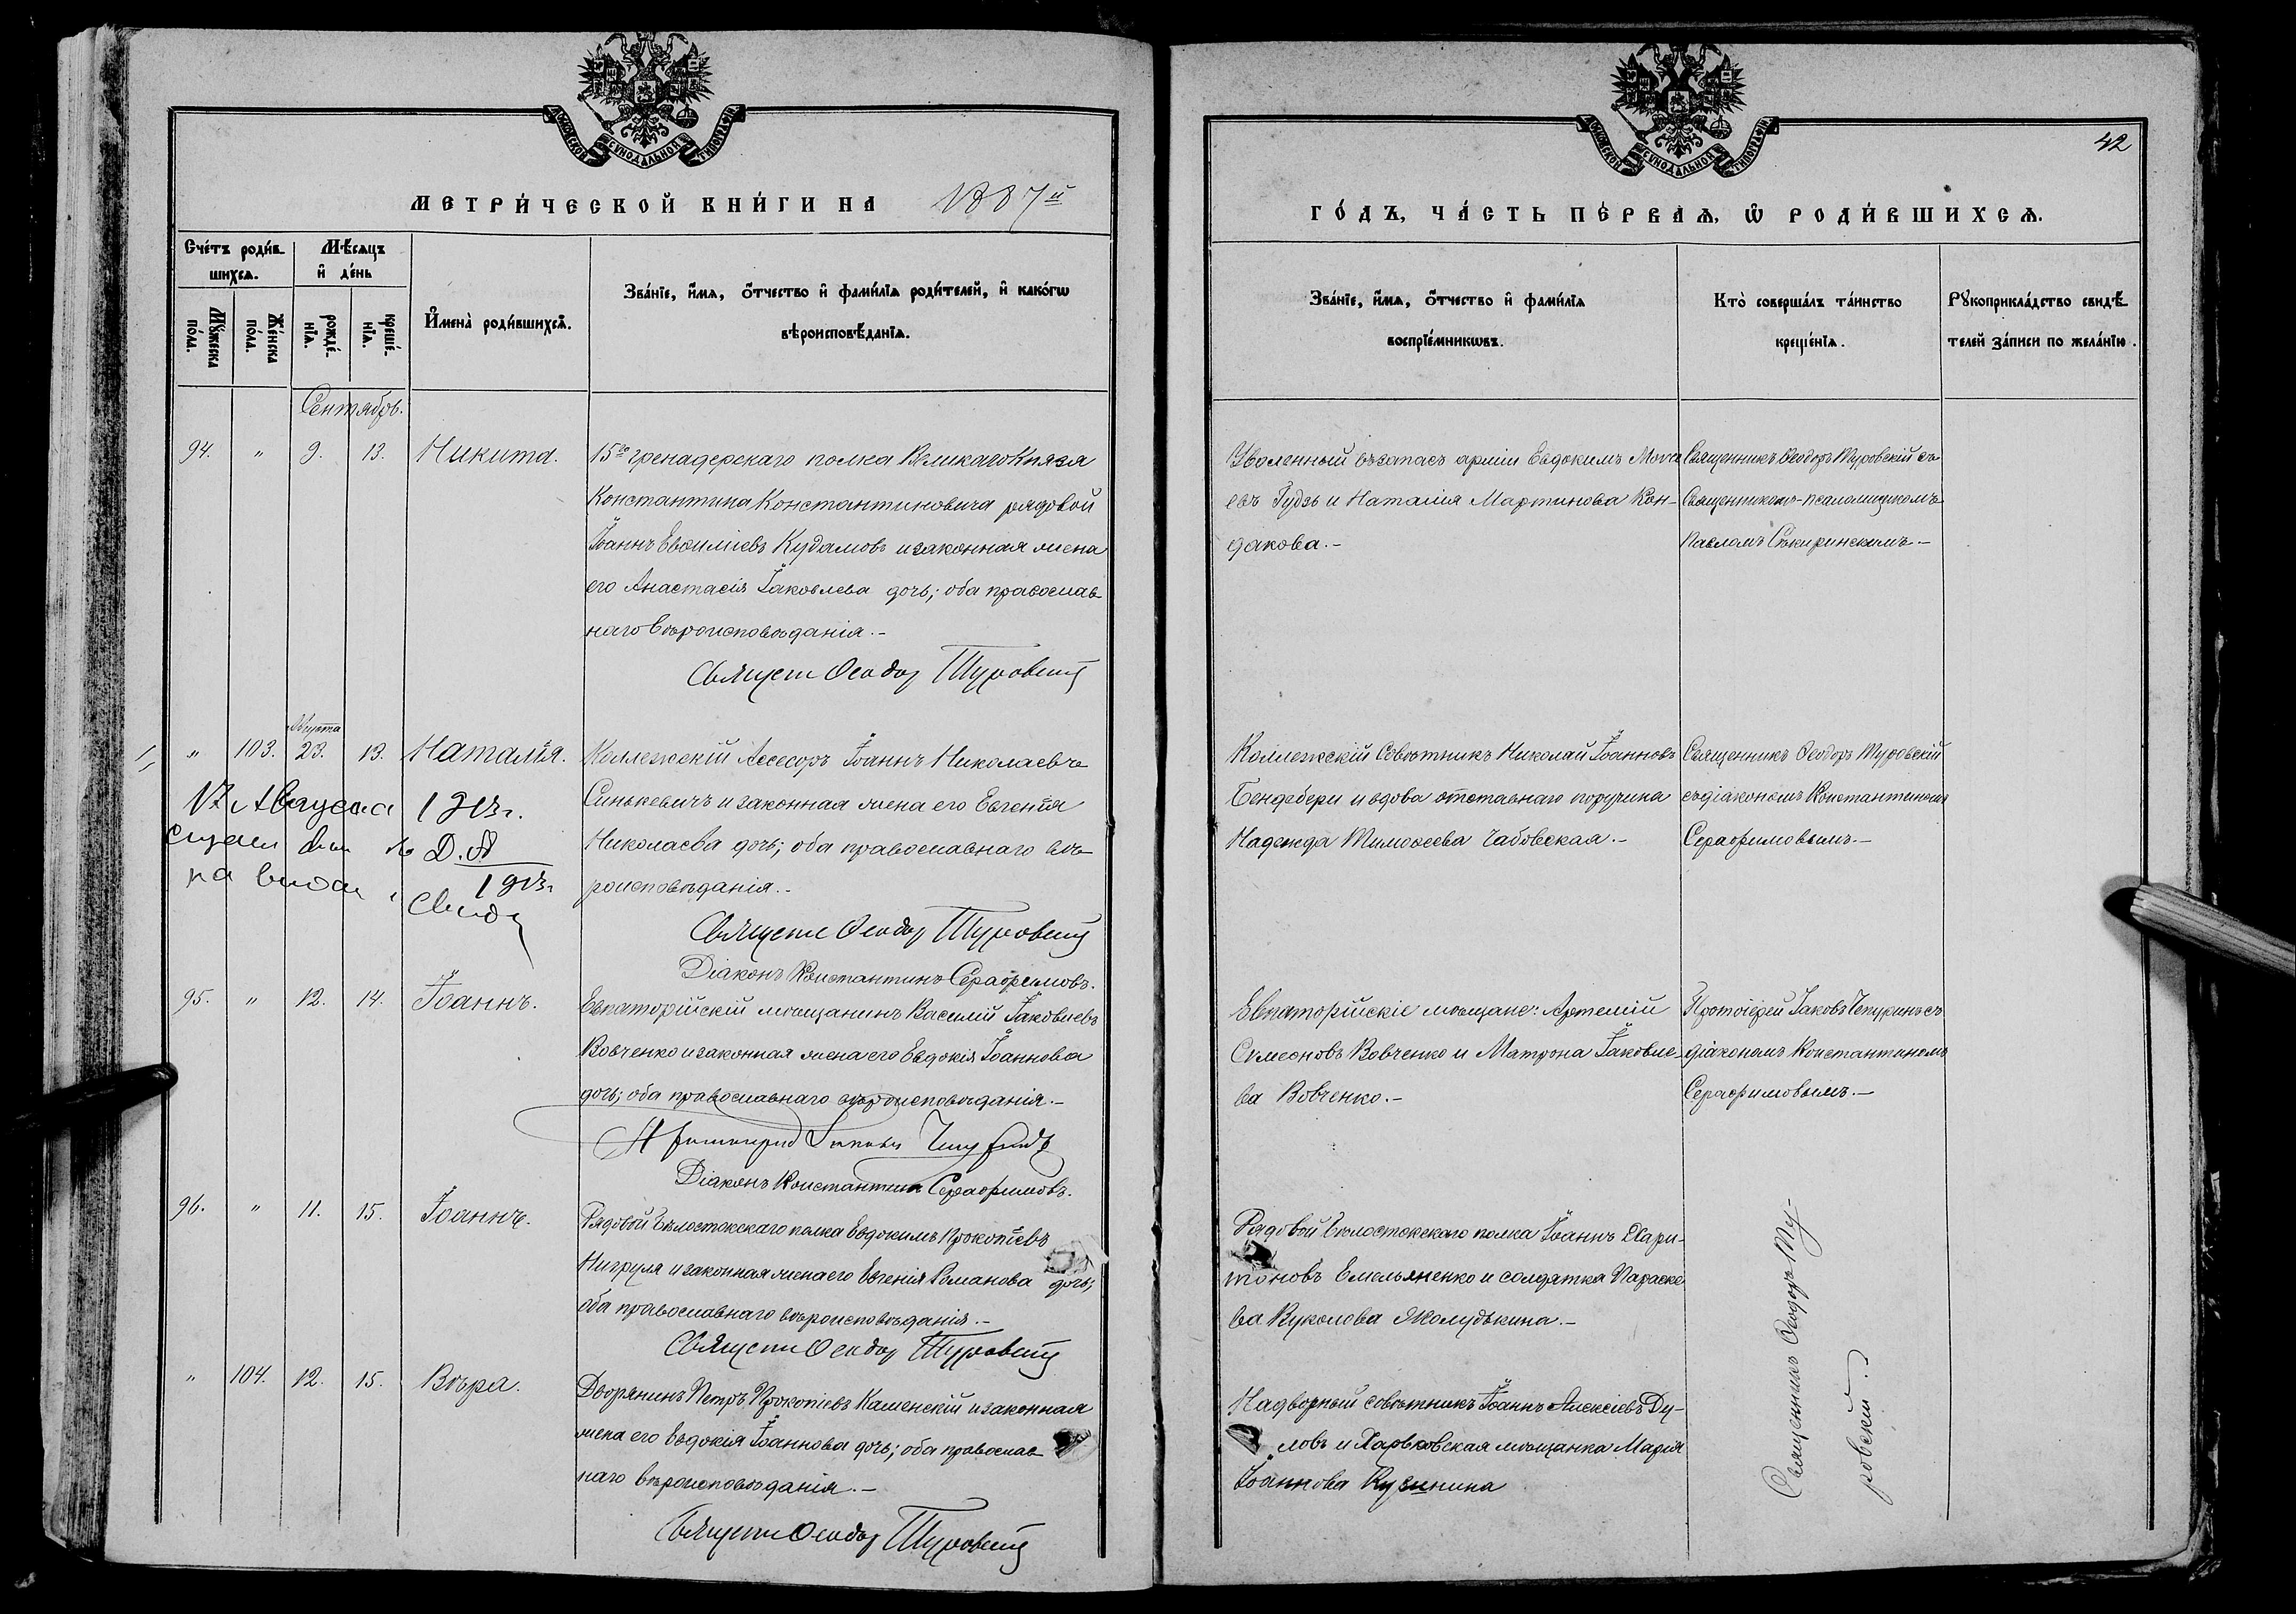 МОСКОВСКОЙ СѴНОДАЛЬНОЙ ТИПОГРАФІИ
МЕТРИ́ЧЕСКОЙ КНИ́ГИ НА 1887й
Сче́тъ роди́в-
шихсѧ.
Мѣ́сѧцъ
и҆ де́нь
Мꙋ́жеска
по́ла.
Же́нска
по́ла.
рожде́-
нїѧ.
креще́-
нїѧ.
И҆мена̀ роди́вшихсѧ.
Зва́нїе, и҆́мѧ, ѻ҆́тчество и҆ фами́лїѧ роди́телей, и҆ како́гѡ
вѣроисповѣ́данїѧ.
Сентябрь.
94. " 9. 13. Никита.
15го гренадерскаго полка Великаго Князя
Константина Константиновича рядовой
Іоаннъ Кудамовъ и законная жена
его Анастасія Іаковлева дочь; оба православ-
наго вѣроисповѣданія.-
Священ Ѳеодор Туровскій
Августа
" 103. 23. 13. Наталія.
Коллежскій Ассесоръ Іоаннъ Николаевъ
Синькевичъ и законная жена его Евгенія
Николаева дочь; оба православнаго вѣ-
роисповѣданія.-
Священ Ѳеодор Туровскій
Діаконъ Константинъ Серафимовъ.
17 Августа 1913г.
Д.
1913г
95. " 12. 14. Іоаннъ.
Евпаторійскій мѣщанинъ Василій Іаковлевъ
Вовченко и законная жена его Евдокія Іоаннова
дочь; оба православнаго вѣроисповѣданія.-
Протоіерей Іаковъ Чепуринъ
Діаконъ Константинъ Серафимовъ.
96. " 11. 15. Іоаннъ.
Рядовой Бѣлостокскаго полка Евдокимъ Прокопіевъ
Нигруля и законная жена его Евгенія Романова дочь;
оба православнаго вѣроисповѣданія.-
Священ Ѳеодор Туровскій
" 104. 12. 15. Вѣра.
Дворянинъ Петръ Прокопіевъ Каменскій и законная
жена его Евдокія Іоаннова дочь; оба православ-
наго вѣроисповѣданія.-
Священ Ѳеодор Туровскій
МОСКОВСКОЙ СѴНОДАЛЬНОЙ ТИПОГРАФІИ
42
ГО́ДЪ, ЧА́СТЬ ПЕ́РВАѦ, Ѡ҆ РОДИ́ВШИХСѦ.
Зва́нїе, и҆́мѧ, ѻ҆́тчество и҆ фами́лїѧ
воспрїе́мникѡвъ.
Кто̀ соверша́лъ та́инство
креще́нїѧ.
Рꙋкоприкла́дство свидѣ́-
телей за́писи по жела́нїю.
Уволенный въ запасъ арміи Евдокимъ
евъ Гудзь и Наталія Мартинова Кон-
дакова.-
Священникъ Ѳеодоръ Туровскій съ
Священникомъ-псаломщикомъ
Павломъ Сѣкиринскимъ.-
Коллежскій Совѣтникъ Николай Іоанновъ
Бендебери и вдова отставнаго поручика
Надежда Тимоѳеева Чабовская.-
Священникъ Ѳеодоръ Туровскій
съ діакономъ Константиномъ
Серафимовымъ.-
Евпаторійскіе мѣщане: Артемій
Симеоновъ Вовченко и Матрона Іаковле-
ва Вовченко.-
Протоіерей Іаковъ Чепуринъ съ
діакономъ Константиномъ
Серафимовымъ.-
Рядовой Бѣлостокскаго полка Іоаннъ Хари-
тоновъ Емельяненко и солдатка Параске-
ва Вуколова Жолудькина.-
Надворный совѣтникъ Іоаннъ Алексіевъ Ду-
мовъ и Харьковская мѣщанка Марія
Іоаннова Кузинина
Священникъ Ѳеодоръ Ту-
ровскій.